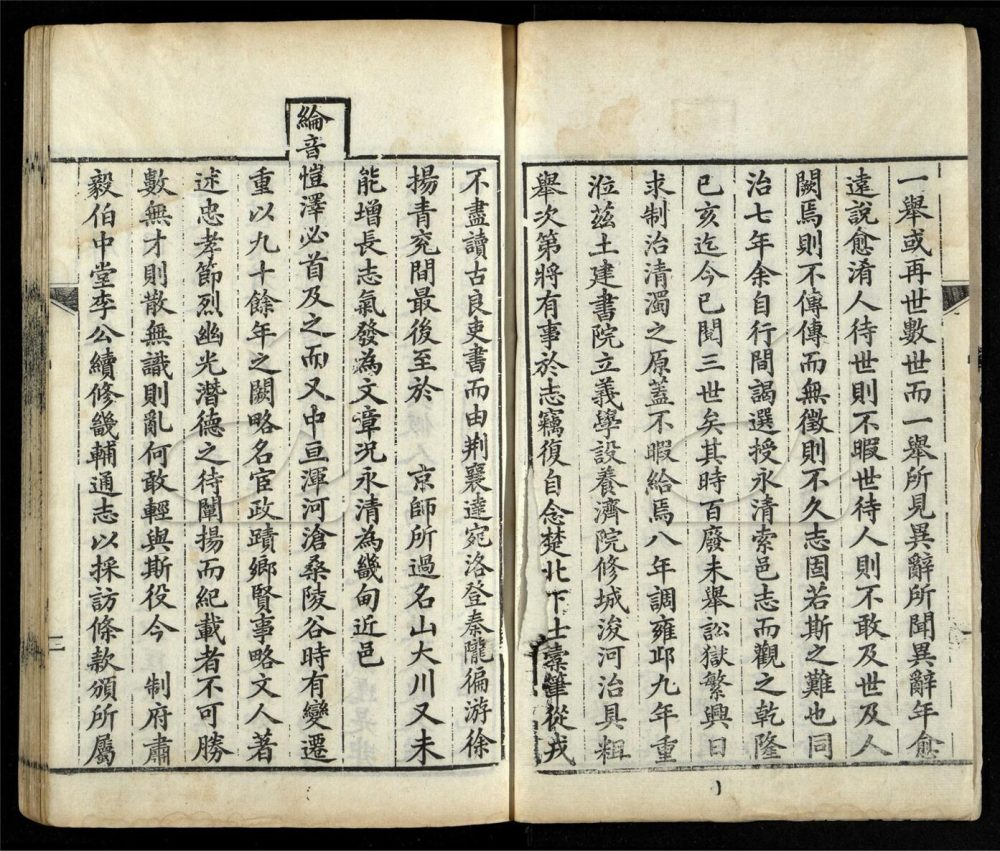 一舉或再世數世而一舉所見異辭所聞異辭年愈
遠說愈淆人待世則不暇世待人則不敢及世及人
闕焉則不傳傳而無徵則不久志固若斯之難也同
治七年余自行間謁選授永清索邑志而觀之乾隆
己亥迄今已閱三世矣其時百廢未舉訟獄繁興日
求制治清濁之原蓋不暇給焉八年調雍邱九年重
涖茲土建書院立義學設養濟院修城浚河治具粗
舉次第將有事於志竊復自念楚北下士橐筆從戎
不盡讀古良吏書而由荆襄達宛洛登秦隴徧游徐
揚青兖間最後至於 京師所過名山大川又未
能增長志氣發為文章況永清為畿甸近邑
綸音愷澤必首及之而又中亘渾河滄桑陵谷時有變遷
重以九十餘年之闕略名宦政蹟鄉賢事略文人著
述忠孝節烈幽光潛德之待闡揚而紀載者不可勝
數無才則散無識則亂何敢輕與斯役今 制府肅
毅伯中堂李公續修畿輔通志以採訪條款頒所屬
三